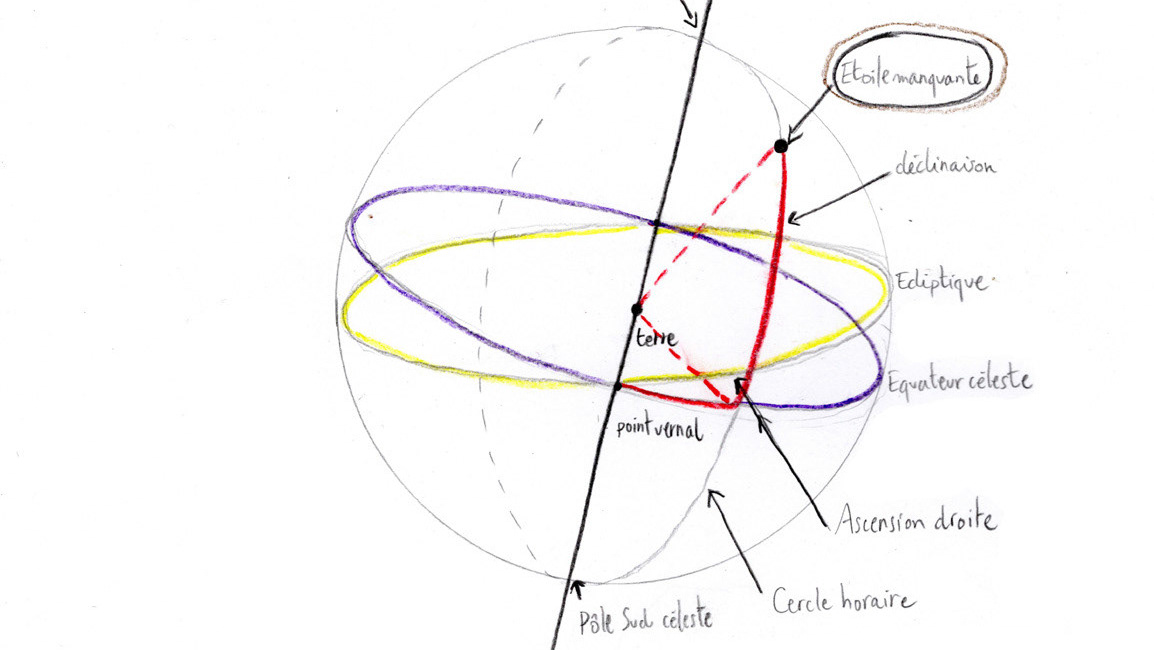 Etoile manquante
déclinaison
Ecliptique
terre
Equateur céleste
point vernal
Ascension droite
Cercle horaire
Pôle Sud céleste